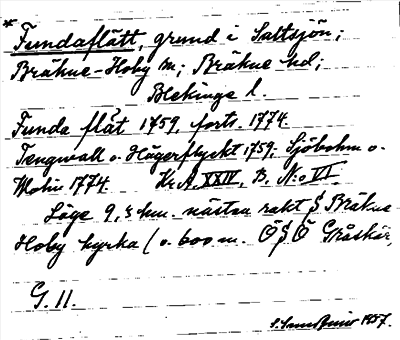 * Fundaflätt, grund i Saltsjön;
Bräkne-Hoby sn; Bräkne hd;
Blekinge l.
Funda flät 1759, forts. 1774
Tengwall o. Hägerflyckt 1759, Sjöbohm o.
Molin 1774. Kr.A. XXIV, B, N:o VI
Läge 9,5 km. nästan rakt S Bräkne
Hoby kyrka / o. 600 m. ÖSÖ Gråskär,
G. 11.
1957.